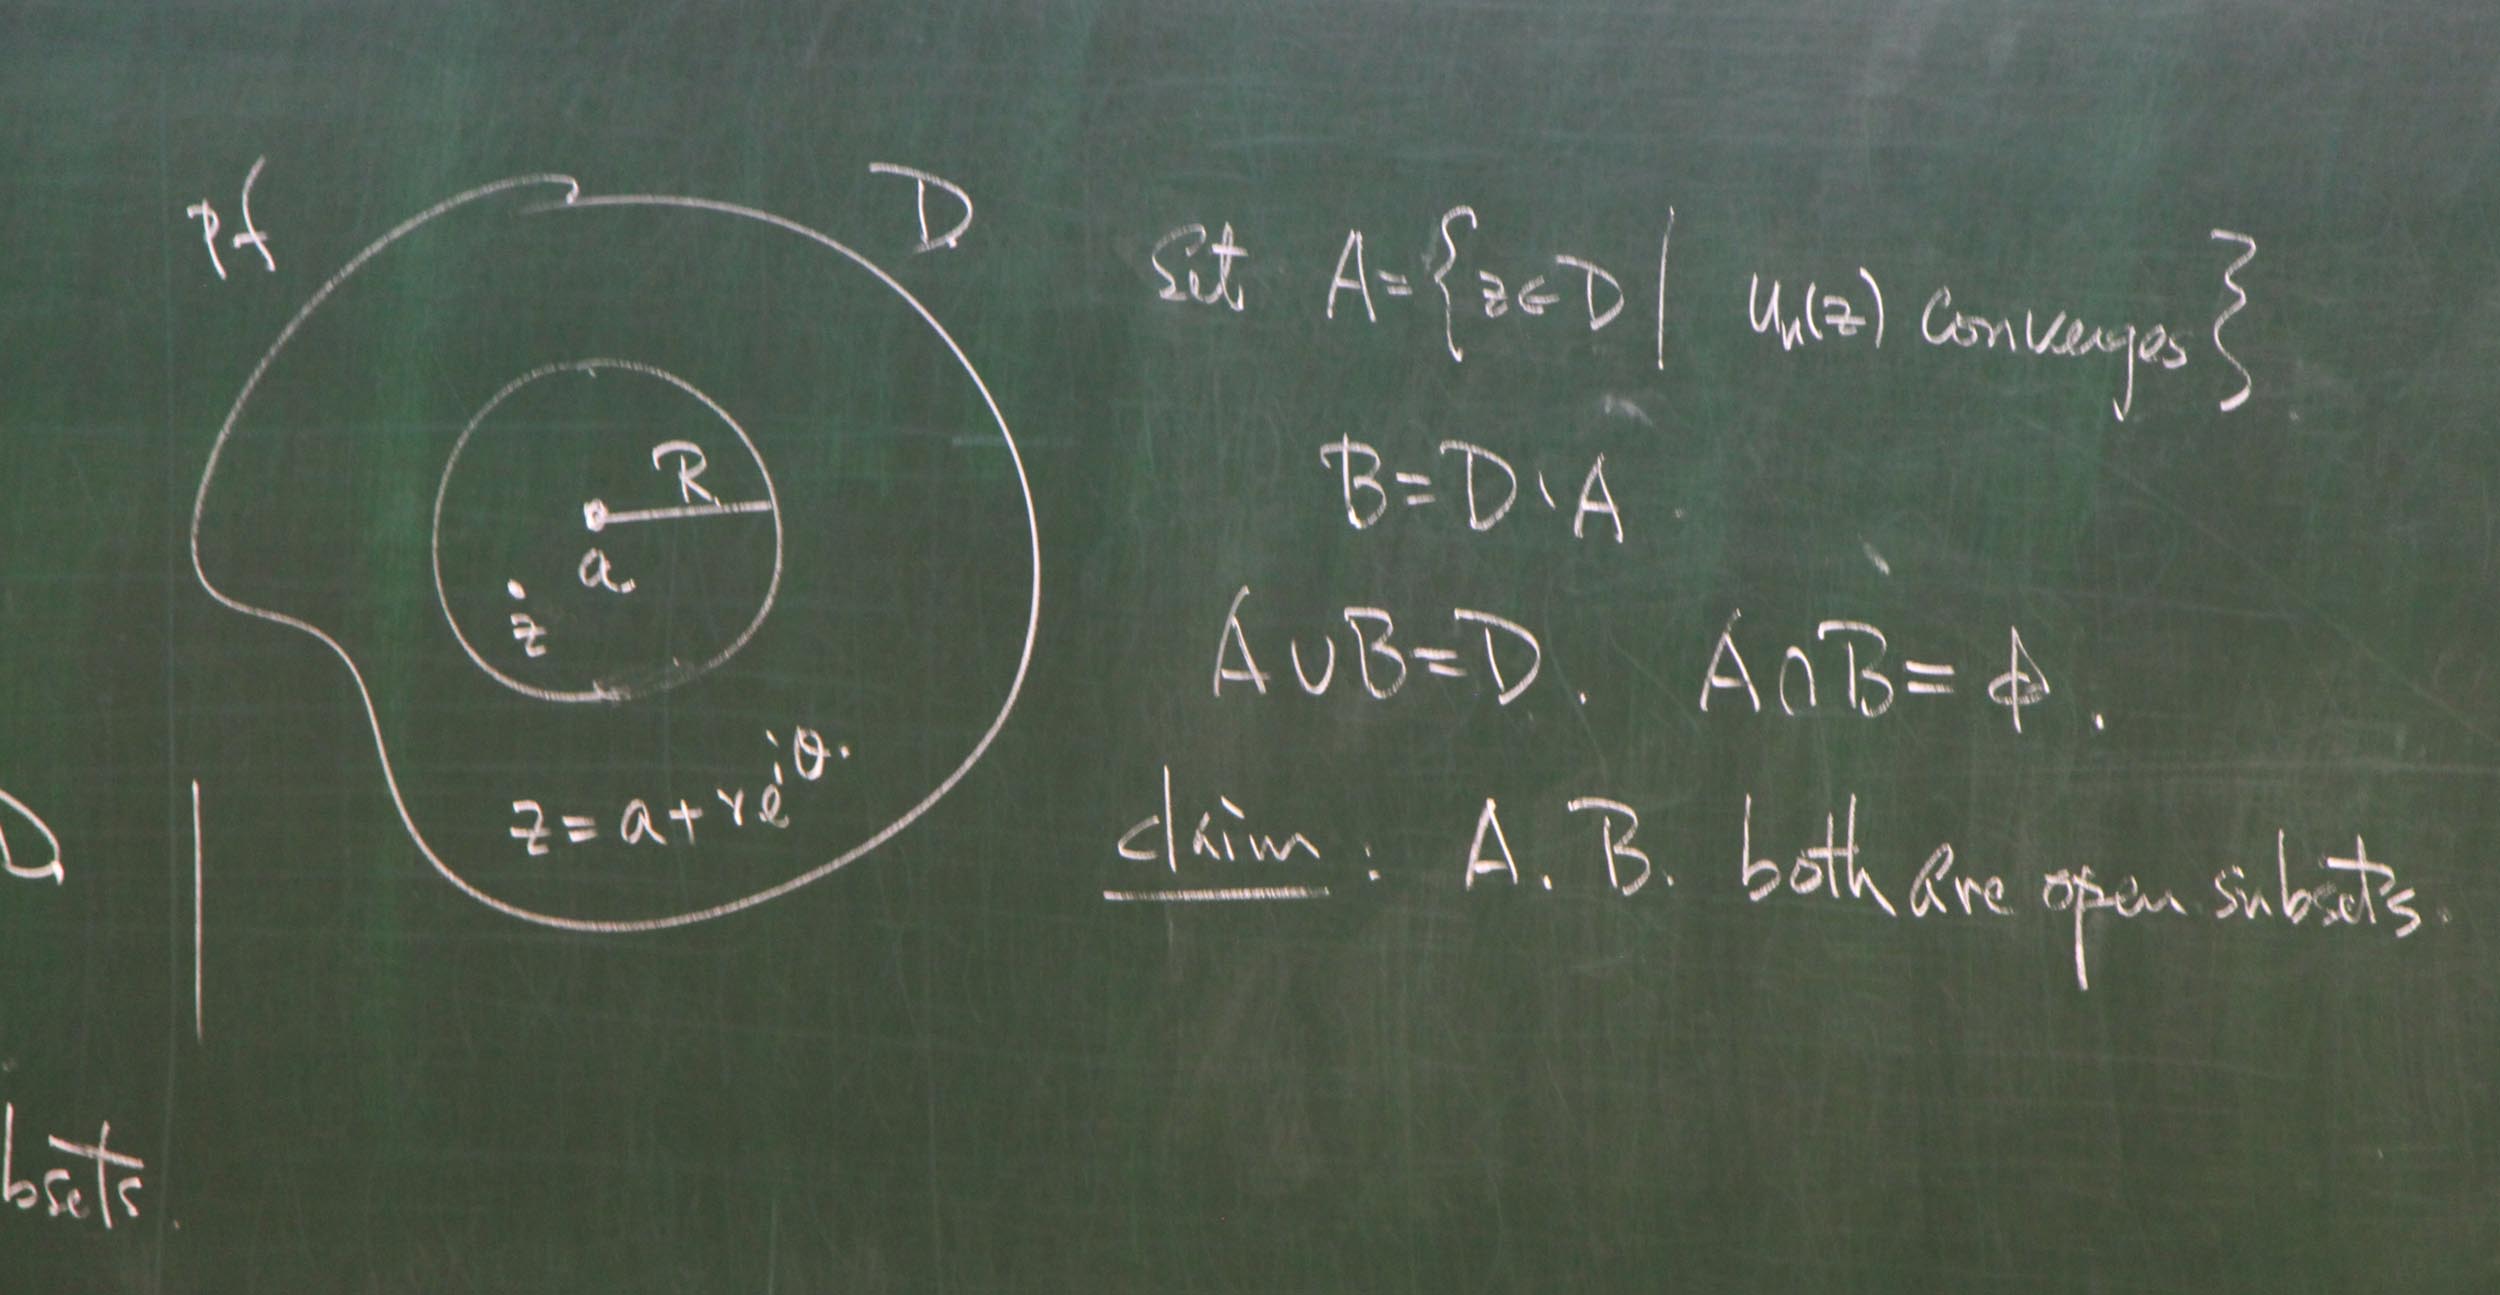 pf
D
R
a
z
z = a + re^{iθ}.
Set A = { z ∈ D | u_n(z) converges }
B = D \ A.
A ∪ B = D. A ∩ B = ϕ.
claim : A. B. both are open subsets.
D
bsets.